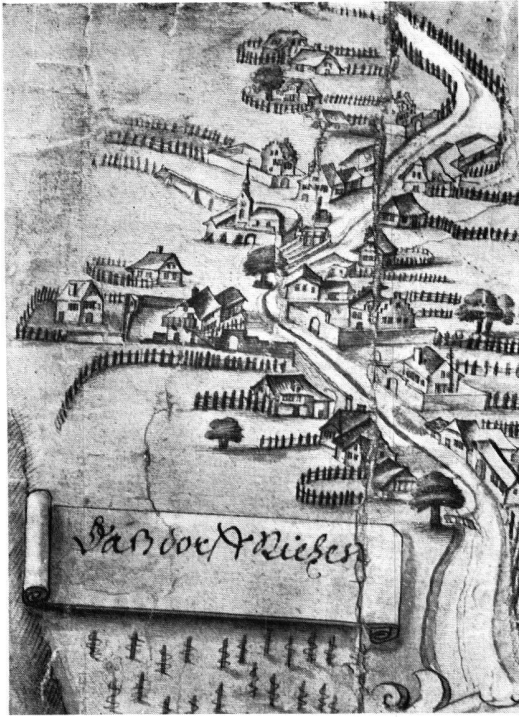 Daß dorf Riehen